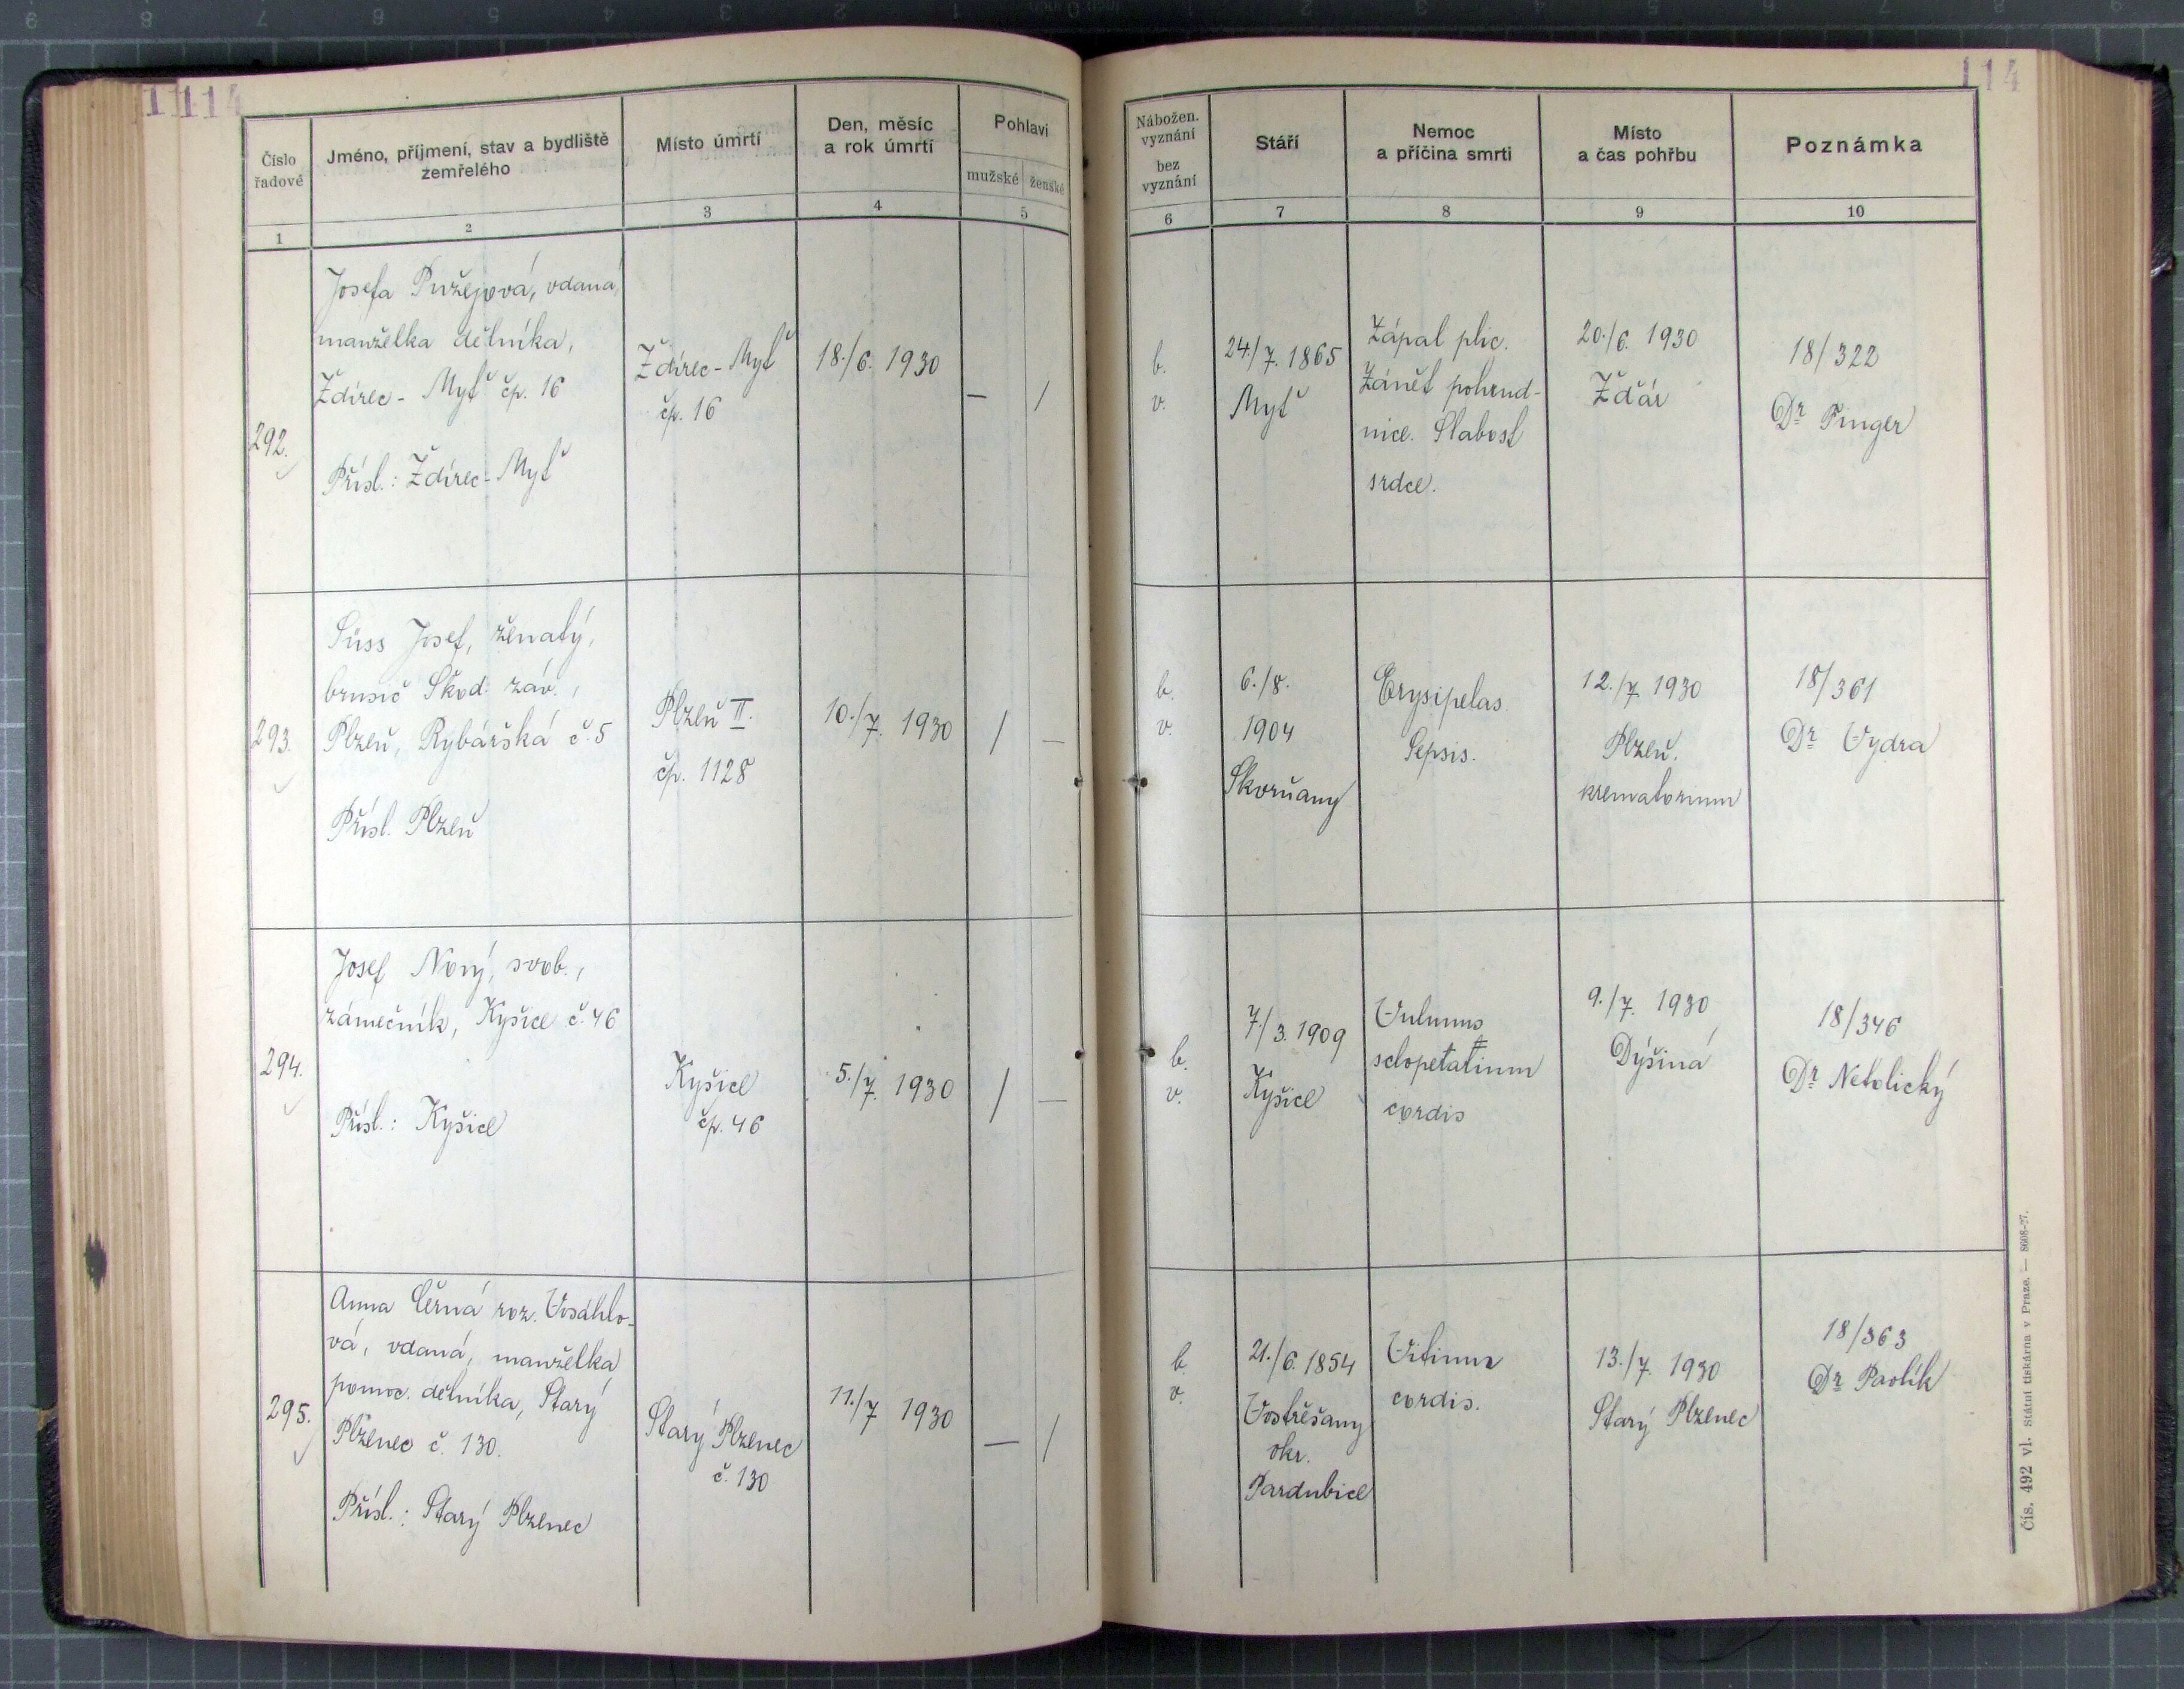 114
114
Číslo
řadové
Jméno, příjmení, stav a bydliště
zemřelého
Místo úmrtí
Den, měsíc
a rok úmrtí
Pohlaví
mužské
ženské
Nábožen.
vyznání
bez
vyznání
Stáří
Nemoc
a příčina smrti
Místo
a čas pohřbu
Poznámka
1
2
3
4
5
6
7
8
9
10
292.
Josefa Pužejová, vdaná,
manželka dělníka,
Ždírec - Myť čp. 16
Přísl.: Ždírec - Myť
Ždírec - Myť
čp. 16
18./6. 1930
—
/
b.
v.
24./7. 1865
Myť
Zápal plic.
Zánět pohrud-
nice. Slabost
srdce.
20./6. 1930
Žďár
18/322
Dr Pinger
293.
Süss Josef, ženatý,
brusič Škod. záv.,
Plzeň, Rybářská č. 5
Přísl. Plzeň
Plzeň II.
čp. 1128
10./7. 1930
/
—
b.
v.
6./8.
1904
Skvrňany
Erysipelas.
Sepsis.
12./7. 1930
Plzeň.
krematorium
18/361
Dr Vydra
294.
Josef Nový, svob.,
zámečník, Kyšice č. 46
Přísl.: Kyšice
Kyšice
čp. 46
5./7. 1930
/
—
b.
v.
7./3. 1909
Kyšice
Vulnus
sclopetatium
cordis
9./7. 1930
Dýšina
18/346
Dr Netolický
295.
Anna Černá roz. Vosáhlo-
vá, vdaná, manželka
pomoc. dělníka, Starý
Plzenec č. 130.
Přísl.: Starý Plzenec
Starý Plzenec
č. 130
11./7 1930
—
/
b.
v.
21./6. 1854
Vostřešany
okr.
Pardubice
Vitium
cordis.
13./7. 1930
Starý Plzenec
18/363
Dr Pavlík
Čís. 492 vl. Státní tiskárna v Praze. — 8608-27.